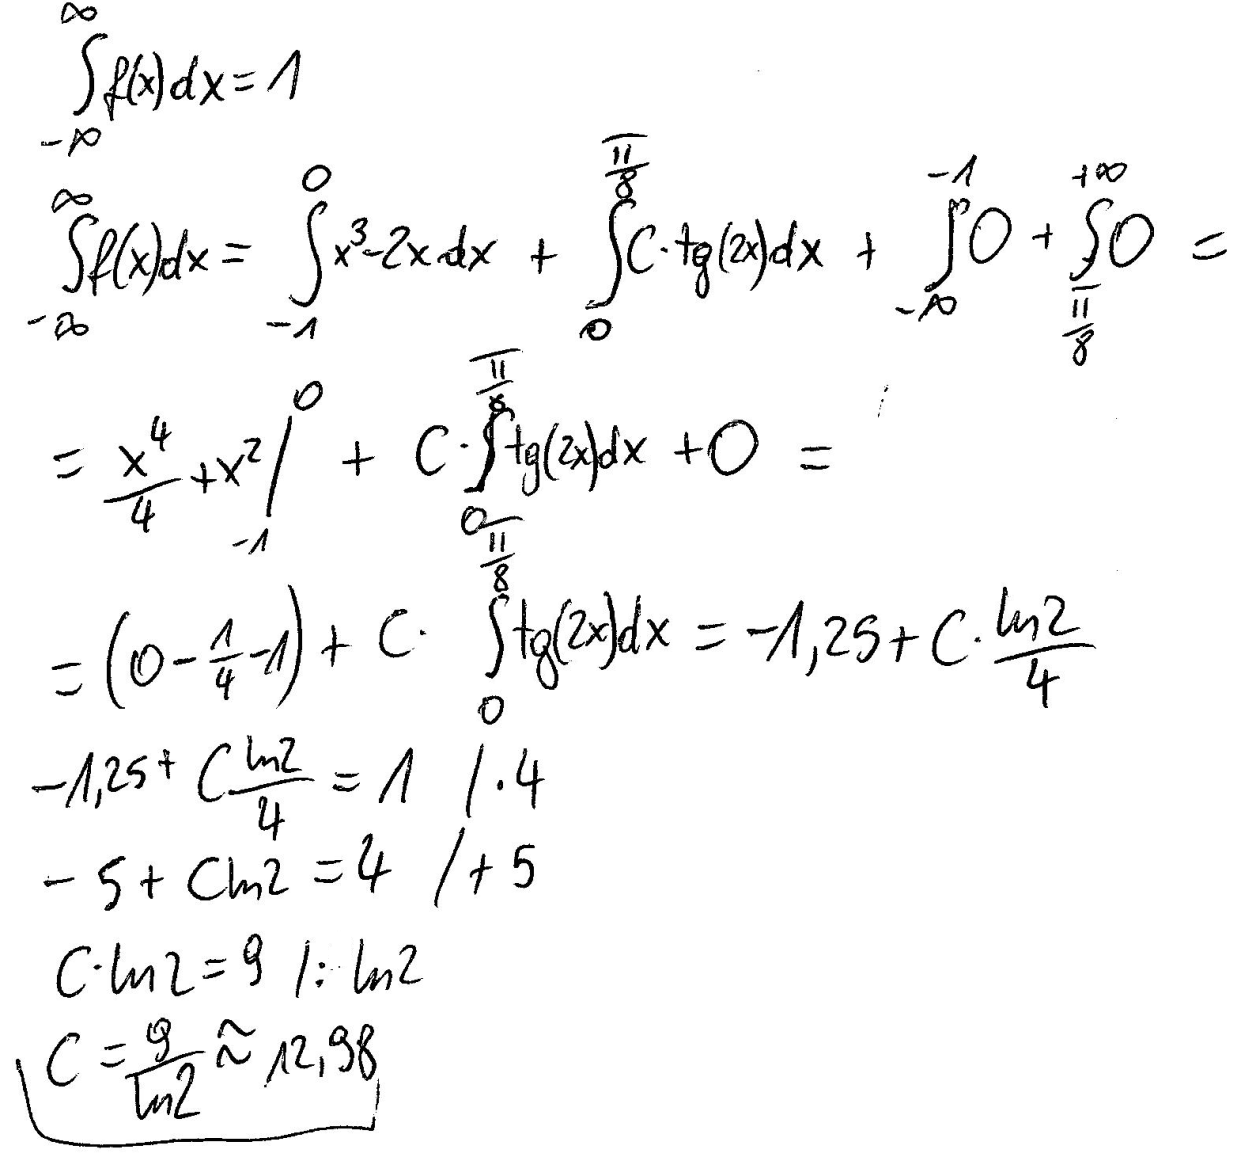 ∫_{-∞}^{∞} f(x)dx = 1
∫_{-∞}^{∞} f(x)dx = ∫_{-1}^{0} x³-2x dx + ∫_{0}^{π/8} C·tg(2x)dx + ∫_{-∞}^{-1} 0 + ∫_{π/8}^{+∞} 0 =
= x⁴/4 + x² |_{-1}^{0} + C·∫_{0}^{π/8} tg(2x)dx + 0 =
= (0 - 1/4 - 1) + C· ∫_{0}^{π/8} tg(2x)dx = -1,25 + C· ln2/4
-1,25 + C ln2/4 = 1 /·4
-5 + C ln2 = 4 /+5
C·ln2 = 9 /: ln2
C = 9/ln2 ≈ 12,98